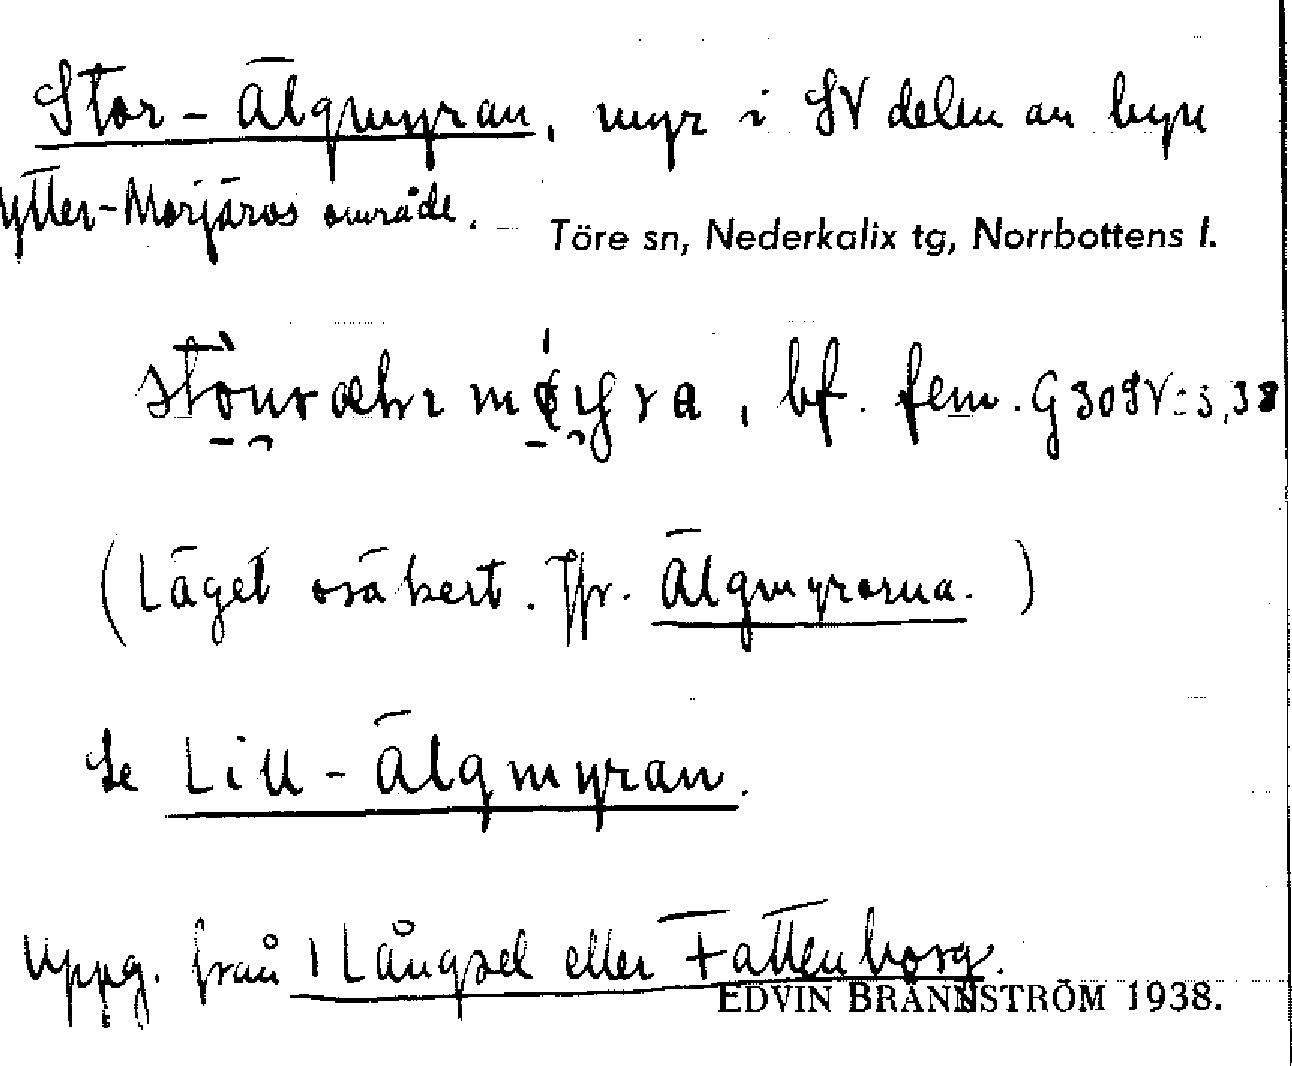 Stor-Älgmyran, myr i SV delen av byn
Ytter-Morjärvs område.
Töre sn, Nederkalix tg, Norrbottens l.
bf. fem.
(Läget osäkert. Jfr. Älgmyrorna.)
Se Lill-Älgmyran.
Uppg. från 1 Långsel eller Fattenborg.
EDVIN BRÄNNSTRÖM 1938.